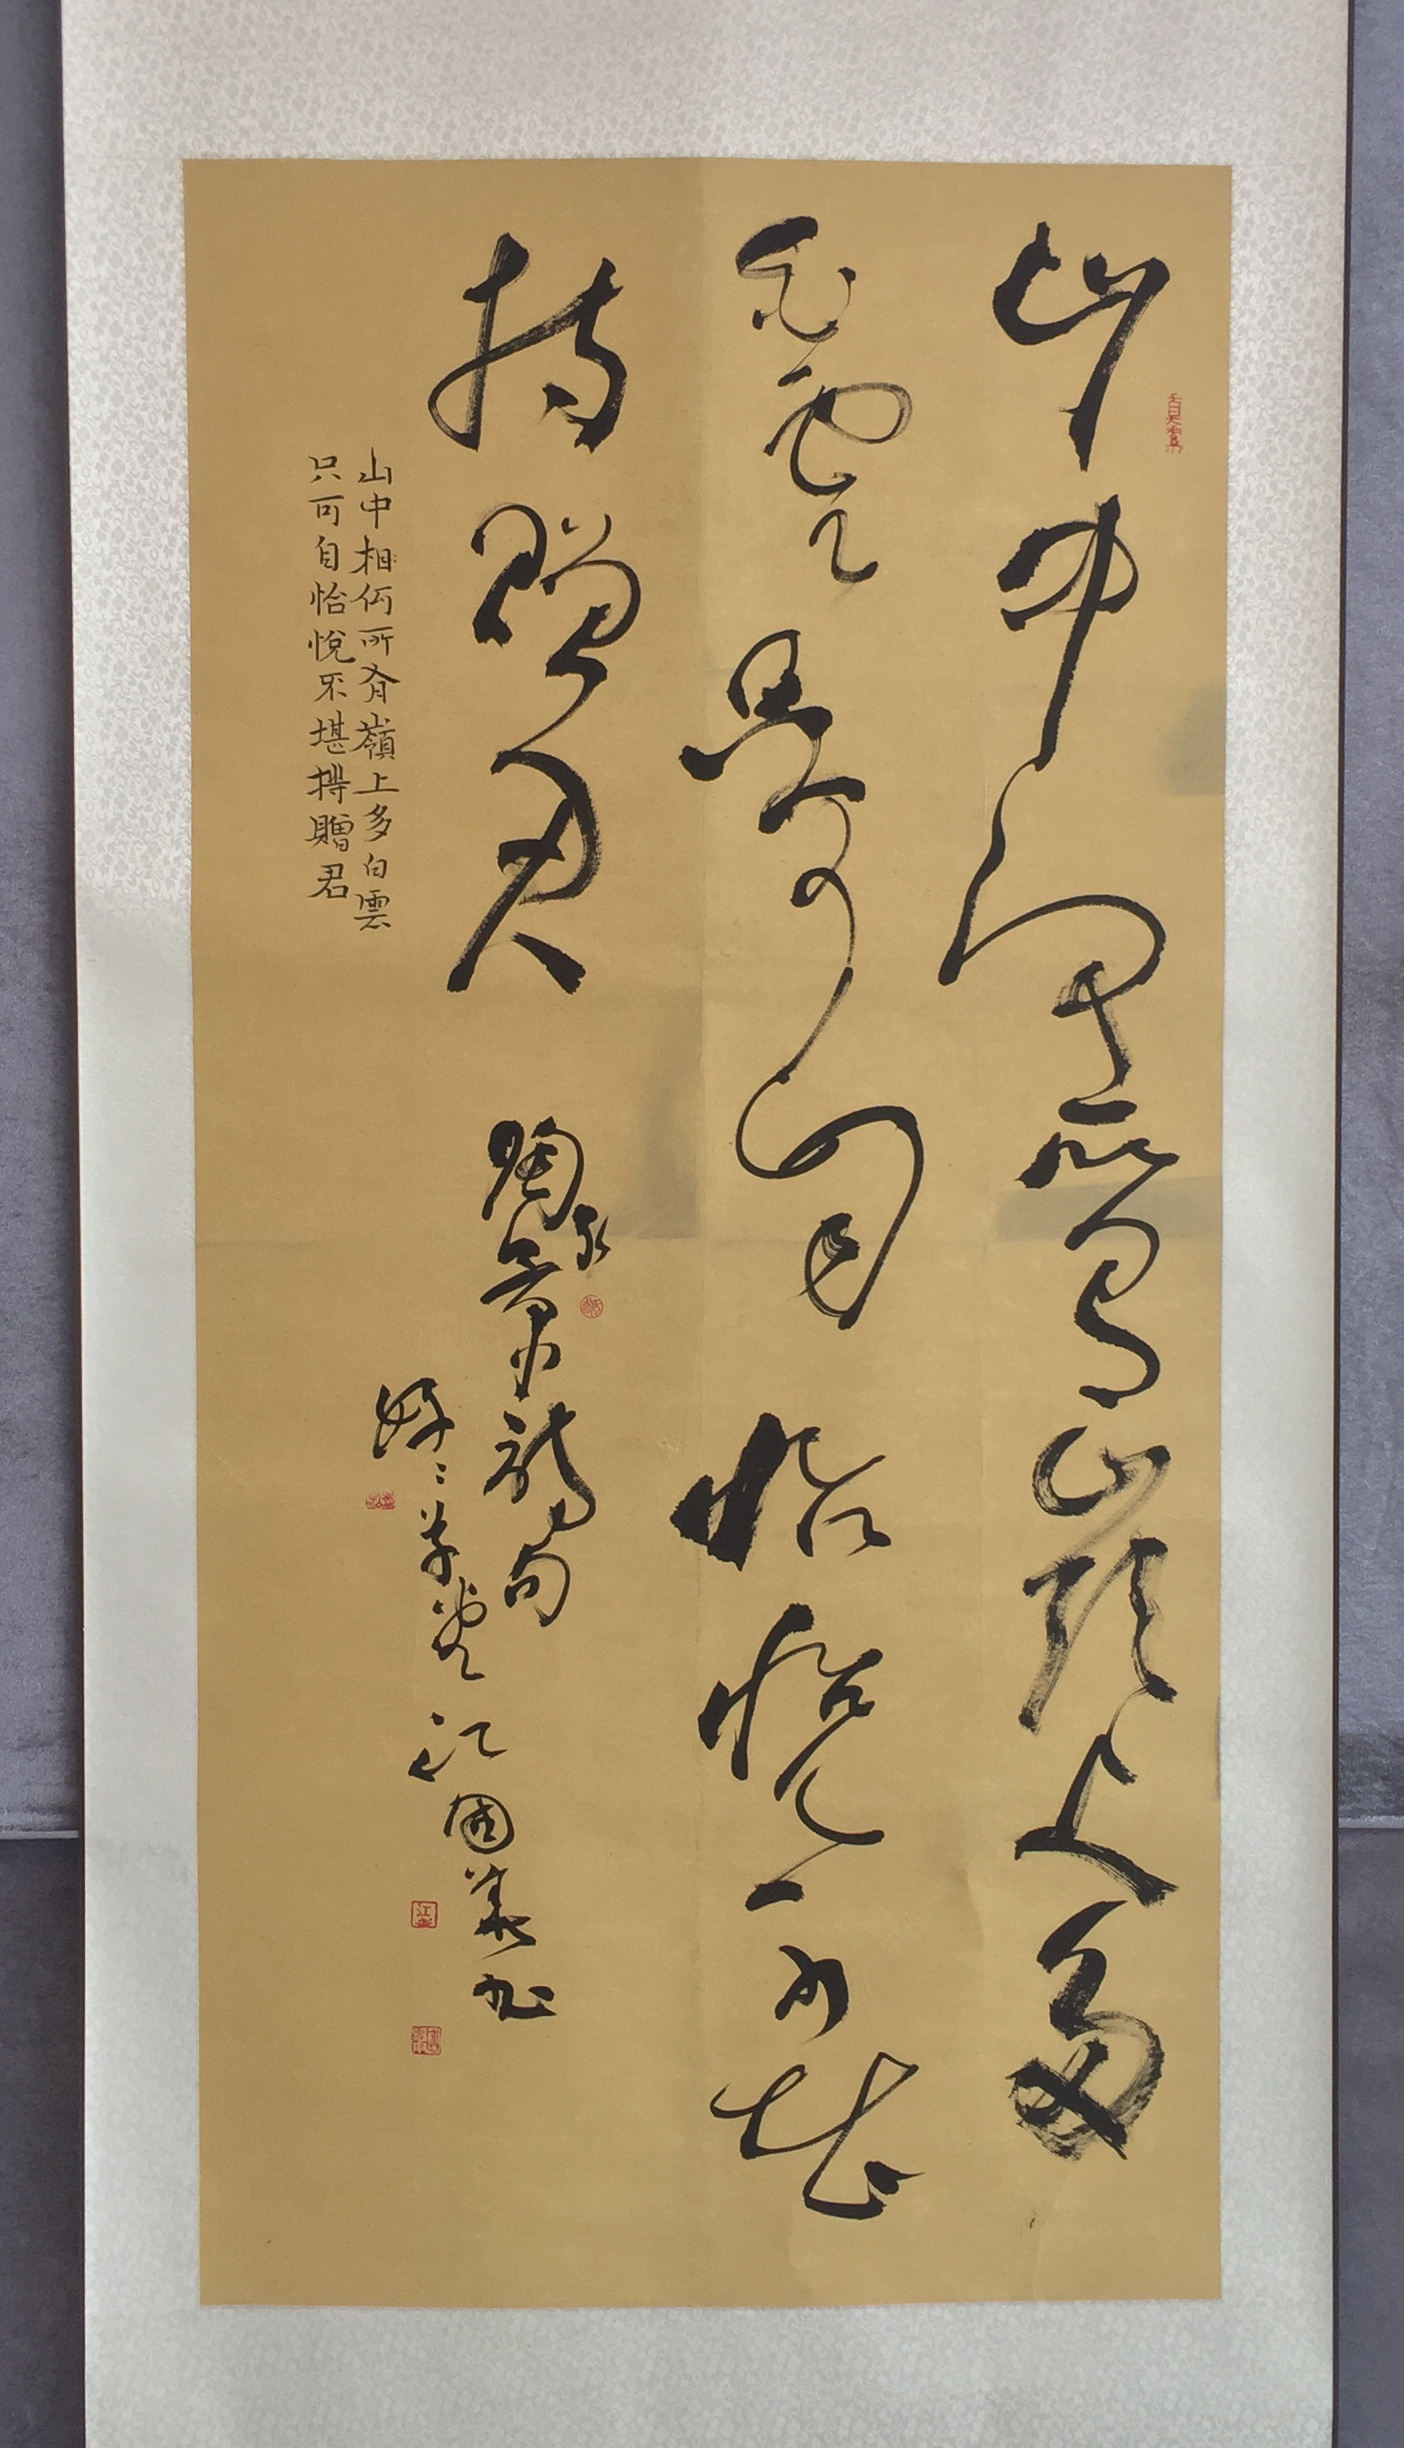 山中何所有山頭上多
白雲只可自怡悅不堪
持贈君
陶弘景詩句
草堂江國義書
山中相何所有嶺上多白雲
只可自怡悅不堪持贈君